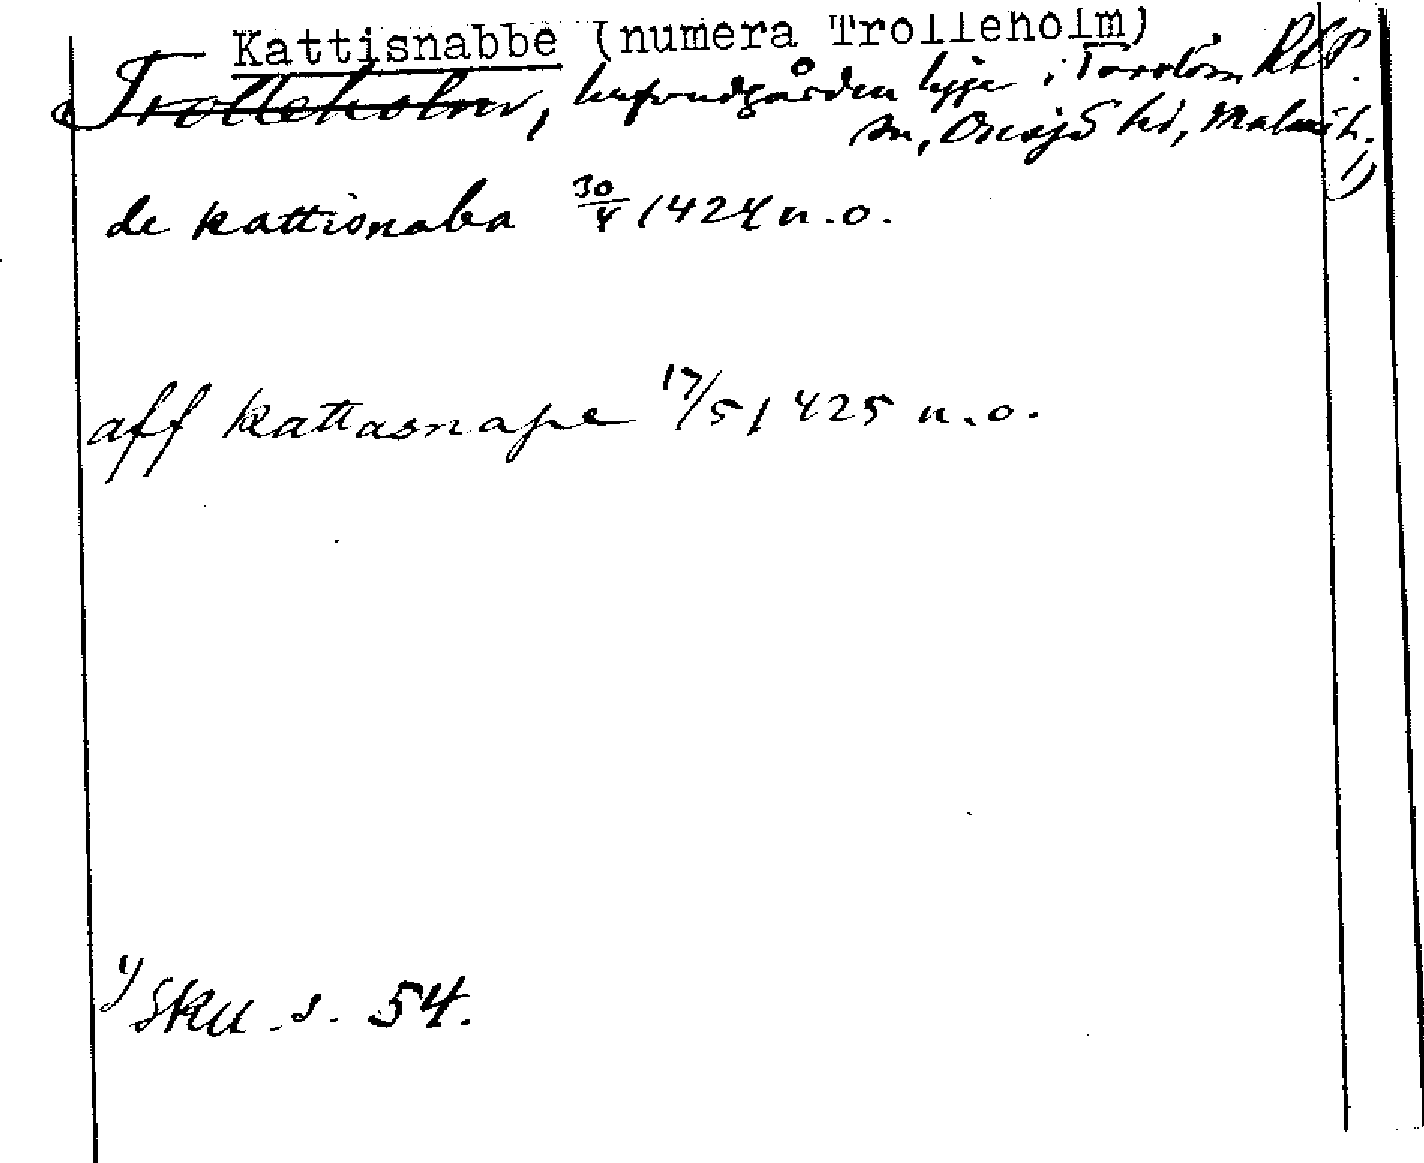 Kattisnabbe (numera Trolleholm)
Trolleholm, hufvudgården ligger i Torrlösa RLP.
sn, Onsjö hd, Malmöh. 1)
de kattisnaba 30/4 1424 u.o.
aff kattasnape 17/5 1425 u.o.
1) SkU s. 54.